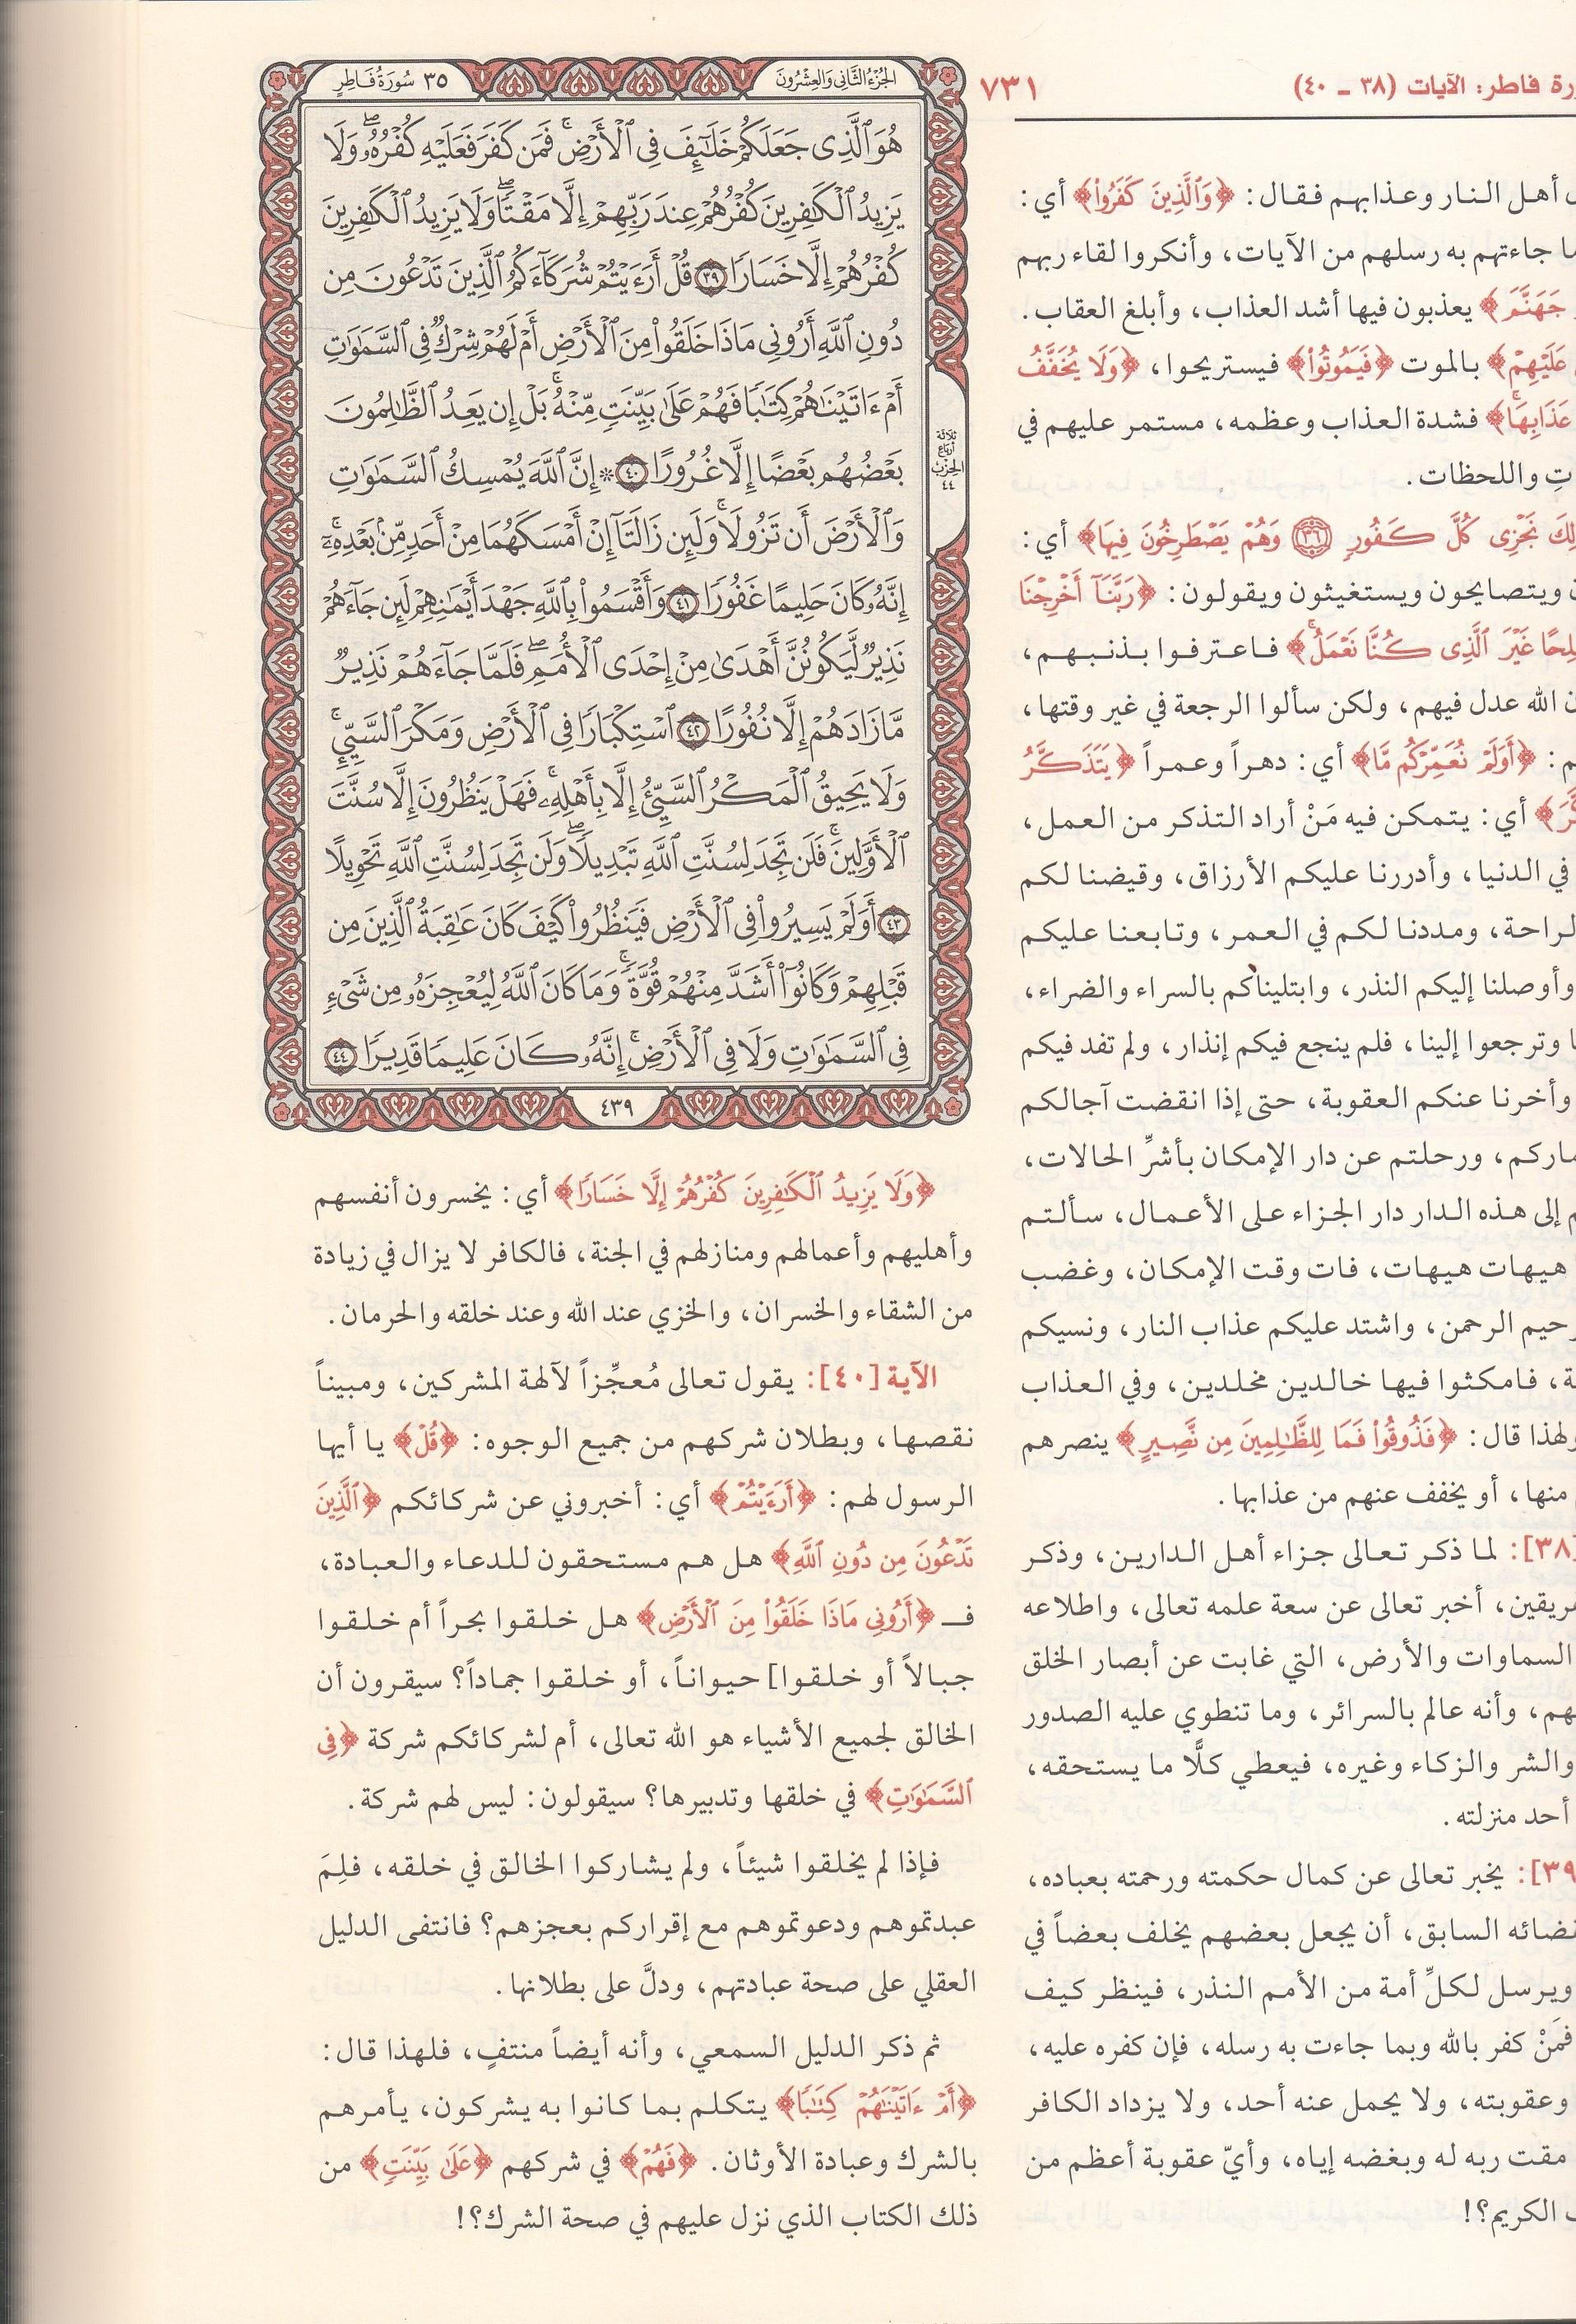 فاطر: الآيات (٣٨ - ٤٠) ٧٣١
أهل النار وعذابهم فقال: ﴿وَٱلَّذِينَ كَفَرُوا۟﴾ أي:
جاءتهم به رسلهم من الآيات، وأنكروا لقاء ربهم
جَهَنَّمَ﴾ يعذبون فيها أشد العذاب، وأبلغ العقاب.
عَلَيْهِمْ﴾ بالموت ﴿فَيَمُوتُوا۟﴾ فيستريحوا، ﴿وَلَا يُخَفَّفُ
عَذَابِهَا﴾ فشدة العذاب وعظمه، مستمر عليهم في
واللحظات.
نَجْزِى كُلَّ كَفُورٍ ٣٦ وَهُمْ يَصْطَرِخُونَ فِيهَا﴾ أي:
ويتصايحون ويستغيثون ويقولون: ﴿رَبَّنَآ أَخْرِجْنَا
غَيْرَ ٱلَّذِى كُنَّا نَعْمَلُ﴾ فاعترفوا بذنبهم،
الله عدل فيهم، ولكن سألوا الرجعة في غير وقتها،
﴿أَوَلَمْ نُعَمِّرْكُم مَّا﴾ أي: دهراً وعمراً ﴿يَتَذَكَّرُ
أي: يتمكن فيه مَنْ أراد التذكر من العمل،
في الدنيا، وأدررنا عليكم الأرزاق، وقيضنا لكم
الراحة، ومددنا لكم في العمر، وتابعنا عليكم
وأوصلنا إليكم النذر، وابتليناكم بالسراء والضراء،
وترجعوا إلينا، فلم ينجع فيكم إنذار، ولم تفد فيكم
وأخرنا عنكم العقوبة، حتى إذا انقضت آجالكم
ورحلتم عن دار الإمكان بأشرِّ الحالات،
إلى هذه الدار دار الجزاء على الأعمال، سألتم
هيهات هيهات، فات وقت الإمكان، وغضب
الرحمن، واشتد عليكم عذاب النار، ونسيكم
فامكثوا فيها خالدين مخلدين، وفي العذاب
ولهذا قال: ﴿فَذُوقُوا۟ فَمَا لِلظَّٰلِمِينَ مِن نَّصِيرٍ﴾ ينصرهم
منها، أو يخفف عنهم من عذابها.
[٣٨]: لما ذكر تعالى جزاء أهل الدارين، وذكر
أخبر تعالى عن سعة علمه تعالى، واطلاعه
السماوات والأرض، التي غابت عن أبصار الخلق
وأنه عالم بالسرائر، وما تنطوي عليه الصدور
والشر والزكاء وغيره، فيعطي كلًّا ما يستحقه،
أحد منزلته.
[٣٩]: يخبر تعالى عن كمال حكمته ورحمته بعباده،
السابق، أن يجعل بعضهم يخلف بعضاً في
ويرسل لكلِّ أمة من الأمم النذر، فينظر كيف
فمَنْ كفر بالله وبما جاءت به رسله، فإن كفره عليه،
وعقوبته، ولا يحمل عنه أحد، ولا يزداد الكافر
مقت ربه له وبغضه إياه، وأيّ عقوبة أعظم من
الكريم؟!
الجُزْءُ الثَّانِي وَالعِشْرُونَ ٣٥ سُورَةُ فَاطِرٍ
هُوَ ٱلَّذِى جَعَلَكُمْ خَلَٰٓئِفَ فِى ٱلْأَرْضِ ۚ فَمَن كَفَرَ فَعَلَيْهِ كُفْرُهُۥ ۖ وَلَا
يَزِيدُ ٱلْكَٰفِرِينَ كُفْرُهُمْ عِندَ رَبِّهِمْ إِلَّا مَقْتًا ۖ وَلَا يَزِيدُ ٱلْكَٰفِرِينَ
كُفْرُهُمْ إِلَّا خَسَارًا ٣٩ قُلْ أَرَءَيْتُمْ شُرَكَآءَكُمُ ٱلَّذِينَ تَدْعُونَ مِن
دُونِ ٱللَّهِ أَرُونِى مَاذَا خَلَقُوا۟ مِنَ ٱلْأَرْضِ أَمْ لَهُمْ شِرْكٌ فِى ٱلسَّمَٰوَٰتِ
أَمْ ءَاتَيْنَٰهُمْ كِتَٰبًا فَهُمْ عَلَىٰ بَيِّنَتٍ مِّنْهُ ۚ بَلْ إِن يَعِدُ ٱلظَّٰلِمُونَ
بَعْضُهُم بَعْضًا إِلَّا غُرُورًا ٤٠ ۞ إِنَّ ٱللَّهَ يُمْسِكُ ٱلسَّمَٰوَٰتِ
وَٱلْأَرْضَ أَن تَزُولَا ۚ وَلَئِن زَالَتَآ إِنْ أَمْسَكَهُمَا مِنْ أَحَدٍ مِّنۢ بَعْدِهِۦٓ ۚ
إِنَّهُۥ كَانَ حَلِيمًا غَفُورًا ٤١ وَأَقْسَمُوا۟ بِٱللَّهِ جَهْدَ أَيْمَٰنِهِمْ لَئِن جَآءَهُمْ
نَذِيرٌ لَّيَكُونُنَّ أَهْدَىٰ مِنْ إِحْدَى ٱلْأُمَمِ ۖ فَلَمَّا جَآءَهُمْ نَذِيرٌ
مَّا زَادَهُمْ إِلَّا نُفُورًا ٤٢ ٱسْتِكْبَارًا فِى ٱلْأَرْضِ وَمَكْرَ ٱلسَّيِّئِ ۚ
وَلَا يَحِيقُ ٱلْمَكْرُ ٱلسَّيِّئُ إِلَّا بِأَهْلِهِۦ ۚ فَهَلْ يَنظُرُونَ إِلَّا سُنَّتَ
ٱلْأَوَّلِينَ ۚ فَلَن تَجِدَ لِسُنَّتِ ٱللَّهِ تَبْدِيلًا ۖ وَلَن تَجِدَ لِسُنَّتِ ٱللَّهِ تَحْوِيلًا
٤٣ أَوَلَمْ يَسِيرُوا۟ فِى ٱلْأَرْضِ فَيَنظُرُوا۟ كَيْفَ كَانَ عَٰقِبَةُ ٱلَّذِينَ مِن
قَبْلِهِمْ وَكَانُوٓا۟ أَشَدَّ مِنْهُمْ قُوَّةً ۚ وَمَا كَانَ ٱللَّهُ لِيُعْجِزَهُۥ مِن شَىْءٍ
فِى ٱلسَّمَٰوَٰتِ وَلَا فِى ٱلْأَرْضِ ۚ إِنَّهُۥ كَانَ عَلِيمًا قَدِيرًا ٤٤
ثلاثة
أرباع
الحزب
٤٤
٤٣٩
﴿وَلَا يَزِيدُ ٱلْكَٰفِرِينَ كُفْرُهُمْ إِلَّا خَسَارًا﴾ أي: يخسرون أنفسهم
وأهليهم وأعمالهم ومنازلهم في الجنة، فالكافر لا يزال في زيادة
من الشقاء والخسران، والخزي عند الله وعند خلقه والحرمان.
الآية [٤٠]: يقول تعالى مُعجِّزاً لآلهة المشركين، ومبيناً
نقصها، وبطلان شركهم من جميع الوجوه: ﴿قُلْ﴾ يا أيها
الرسول لهم: ﴿أَرَءَيْتُمْ﴾ أي: أخبروني عن شركائكم ﴿ٱلَّذِينَ
تَدْعُونَ مِن دُونِ ٱللَّهِ﴾ هل هم مستحقون للدعاء والعبادة،
فـ ﴿أَرُونِى مَاذَا خَلَقُوا۟ مِنَ ٱلْأَرْضِ﴾ هل خلقوا بحراً أم خلقوا
جبالاً أو خلقوا] حيواناً، أو خلقوا جماداً؟ سيقرون أن
الخالق لجميع الأشياء هو الله تعالى، أم لشركائكم شركة ﴿فِى
ٱلسَّمَٰوَٰتِ﴾ في خلقها وتدبيرها؟ سيقولون: ليس لهم شركة.
فإذا لم يخلقوا شيئاً، ولم يشاركوا الخالق في خلقه، فلِمَ
عبدتموهم ودعوتموهم مع إقراركم بعجزهم؟ فانتفى الدليل
العقلي على صحة عبادتهم، ودلَّ على بطلانها.
ثم ذكر الدليل السمعي، وأنه أيضاً منتفٍ، فلهذا قال:
﴿أَمْ ءَاتَيْنَٰهُمْ كِتَٰبًا﴾ يتكلم بما كانوا به يشركون، يأمرهم
بالشرك وعبادة الأوثان. ﴿فَهُمْ﴾ في شركهم ﴿عَلَىٰ بَيِّنَتٍ﴾ من
ذلك الكتاب الذي نزل عليهم في صحة الشرك؟!